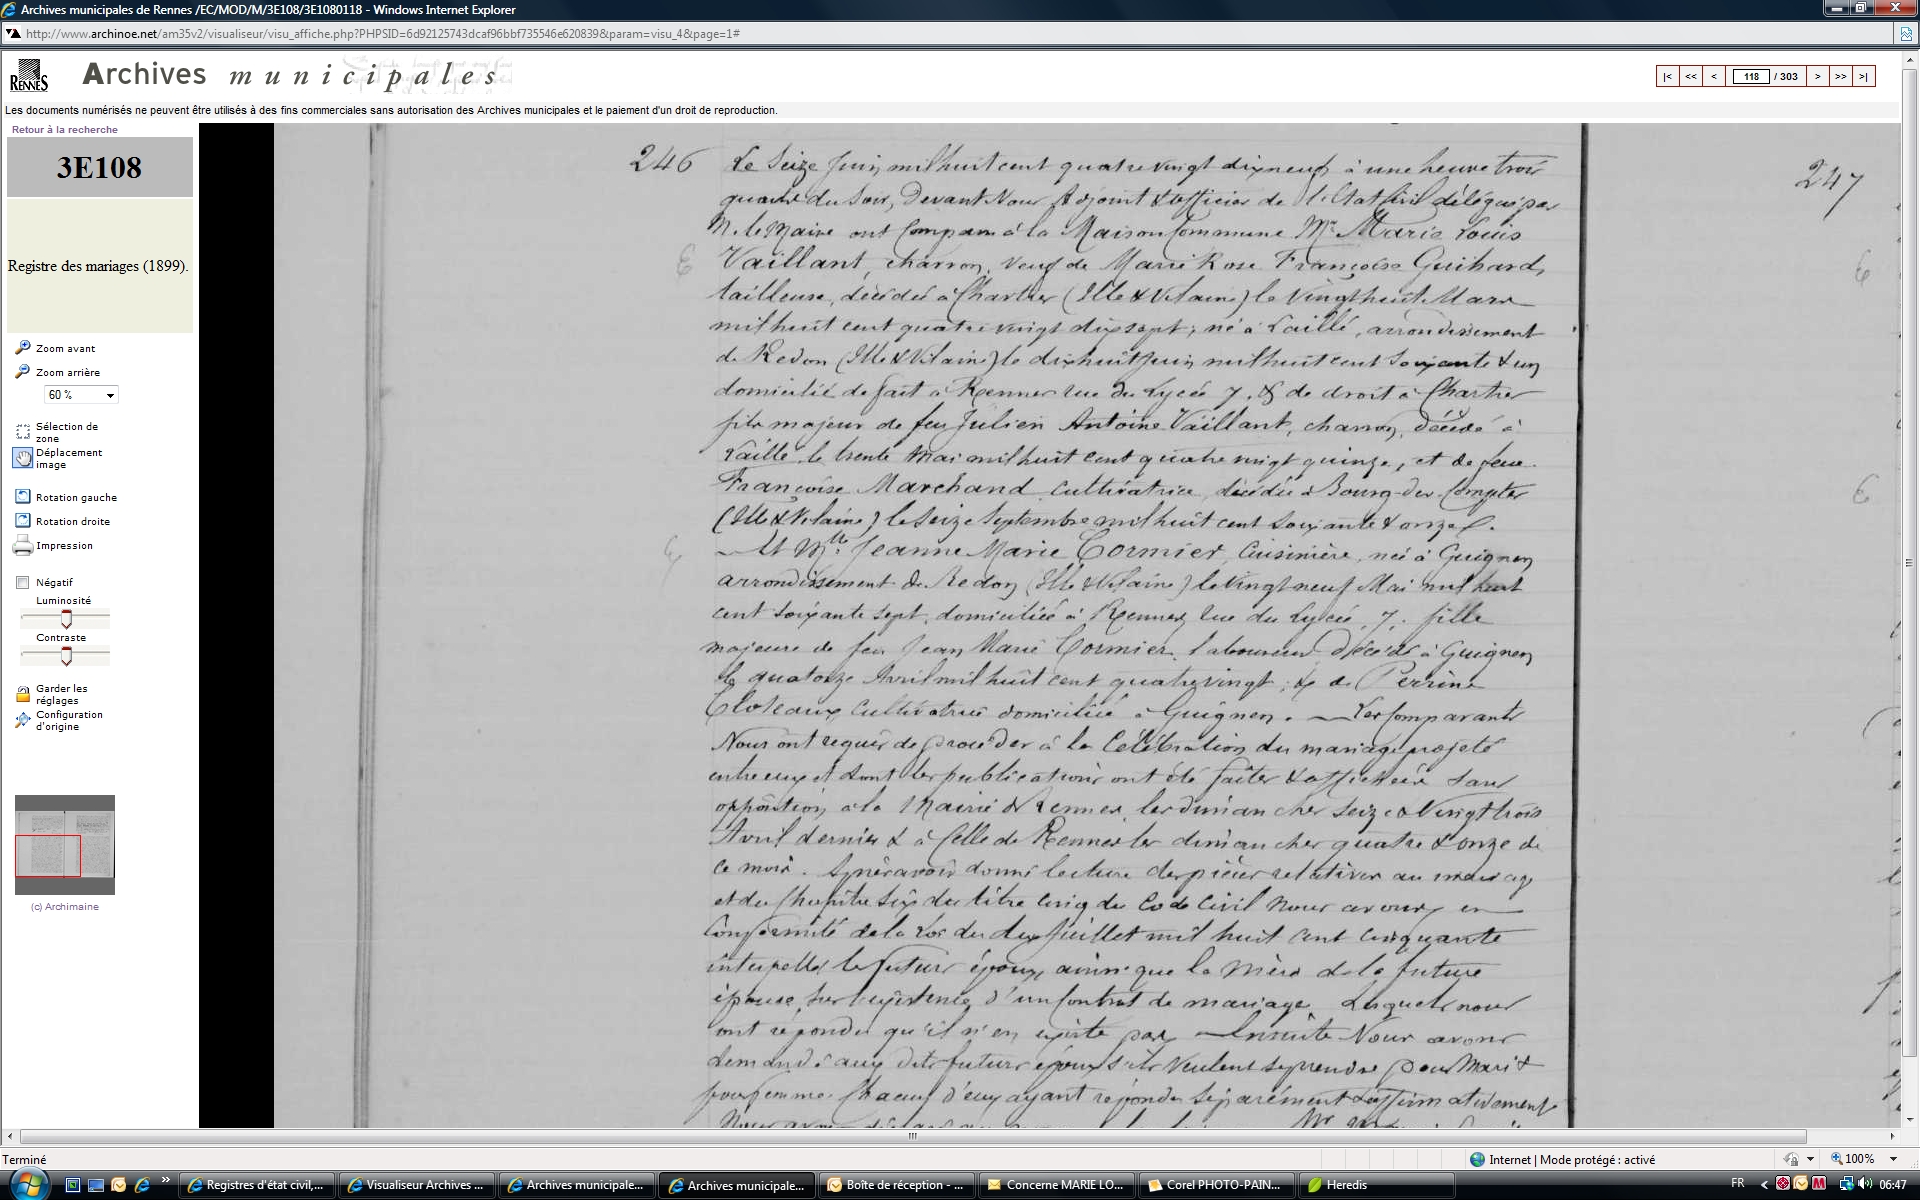 Archives municipales de Rennes /EC/MOD/M/3E108/3E1080118 - Windows Internet Explorer
http://www.archinoe.net/am35v2/visualiseur/visu_affiche.php?PHPSID=6d92125743dcaf96bbf735546e620839&param=visu_4&page=1#
RENNES Archives municipales
|< << < 118 / 303 > >> >|
Les documents numérisés ne peuvent être utilisés à des fins commerciales sans autorisation des Archives municipales et le paiement d'un droit de reproduction.
Retour à la recherche
3E108
Registre des mariages (1899).
Zoom avant
Zoom arrière
60 %
Sélection de
zone
Déplacement
image
Rotation gauche
Rotation droite
Impression
Négatif
Luminosité
Contraste
Garder les
réglages
Configuration
d'origine
(c) Archimaine
246 Le Seize Juin mil huit cent quatre vingt dix neuf à une heure trois
quarts du Soir, Devant Nous Adjoint & officier de l'Etat Civil délégué par
M. le Maire ont Comparu à la Maison Commune Mr Marie Louis
Vaillant, charron, Veuf de Marie Rose Françoise Guihard,
tailleuse, décédée à Chartres (Ille & Vilaine) le Vingt huit Mars
mil huit cent quatre vingt dix sept; né à Laillé, arrondissement
de Redon (Ille & Vilaine) le dix huit Juin mil huit cent soixante & un
domicilié de fait à Rennes rue du Lycée 7, & de droit à Chartres
fils majeur de feu Julien Antoine Vaillant, charron, décédé à
Laillé le trente Mai mil huit cent quatre vingt quinze, et de feue
Françoise Marchand cultivatrice, décédée à Bourg-des-Comptes
(Ille & Vilaine) le Seize Septembre mil huit cent soixante & onze.
Et Mlle Jeanne Marie Cormier, Cuisinière, née à Guignen
arrondissement de Redon (Ille & Vilaine) le Vingt neuf Mai mil huit
cent soixante sept, domiciliée à Rennes rue du Lycée, 7, fille
majeure de feu Jean Marie Cormier, laboureur, décédé à Guignen
le quatorze Avril mil huit cent quatre vingt; & de Perrine
Cloteaux cultivatrice domiciliée à Guignen. Les Comparants
Nous ont requis de procéder à la Célébration du mariage projeté
entre eux et dont les publications ont été faites & affichées sans
opposition, à la Mairie de Rennes, les dimanches seize & Vingt trois
Avril dernier & à Celle de Rennes les dimanches quatre & onze de
ce mois. Après avoir donné lecture des pièces relatives au mariage
et du Chapitre Six du titre Cinq du Code Civil Nous avons, en
Conformité de la Loi du dix Juillet mil huit cent cinquante
interpellé le futur époux, ainsi que la Mère de la future
épouse, sur l'existence d'un Contrat de mariage, Lesquels nous
ont répondu qu'il n'en existe pas. Ensuite Nous avons
demandé aux dits futurs époux s'ils veulent se prendre pour Mari &
pour femme. Chacun d'eux ayant répondu séparément & affirmativement
247
Terminé
Internet | Mode protégé : activé
100%
Registres d'état civil,...
Visualiseur Archives ...
Archives municipale...
Archives municipale...
Boîte de réception - ...
Concerne MARIE LO...
Corel PHOTO-PAIN...
Heredis
FR
06:47